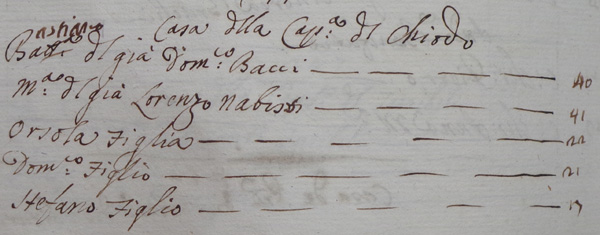 Casa dlla Cap.ª dl Chiodo
Batt.ª dl già Dom.co Bacci — — — — 40
M.ª dl già Lorenzo Nabissi — — — — 41
Orsola Figlia — — — — — 22
Dom.co Figlio — — — — — 21
Stefano Figlio — — — — — 17